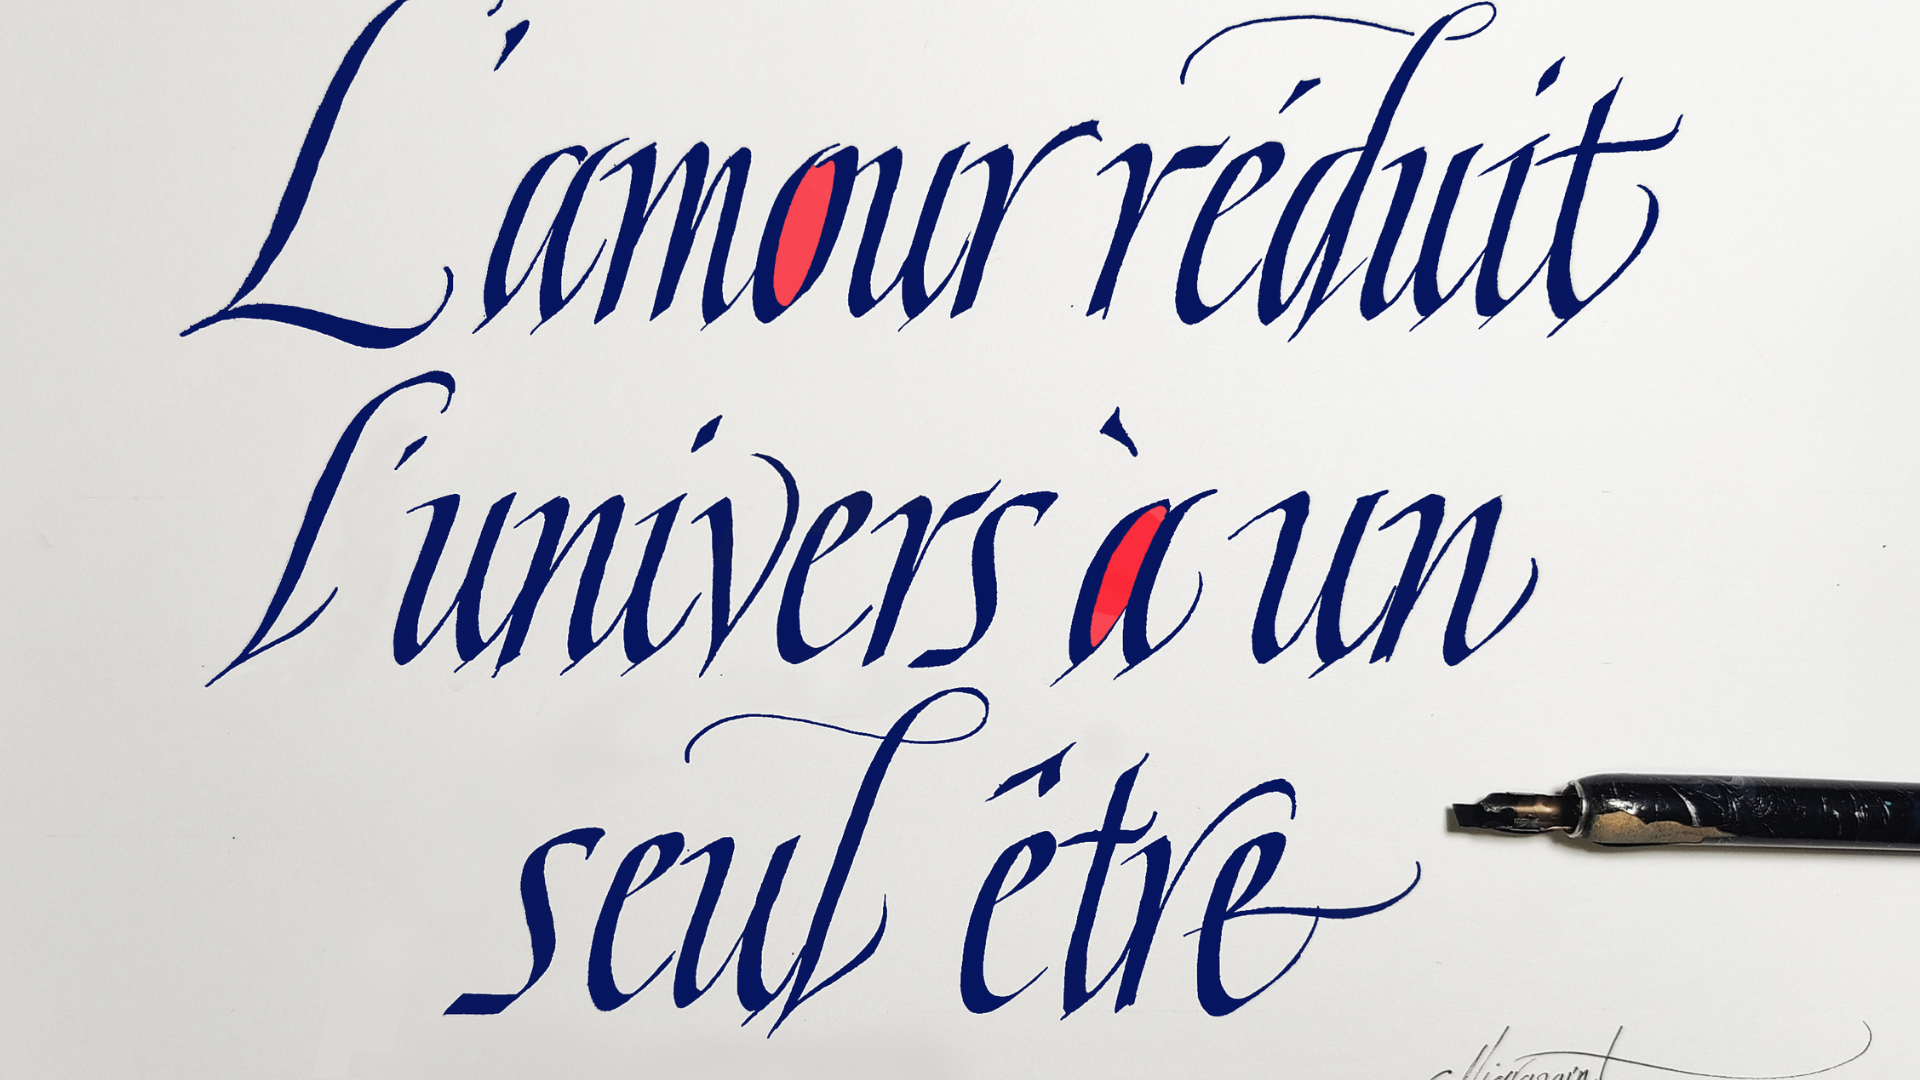 L'amour réduit
l'univers à un
seul être